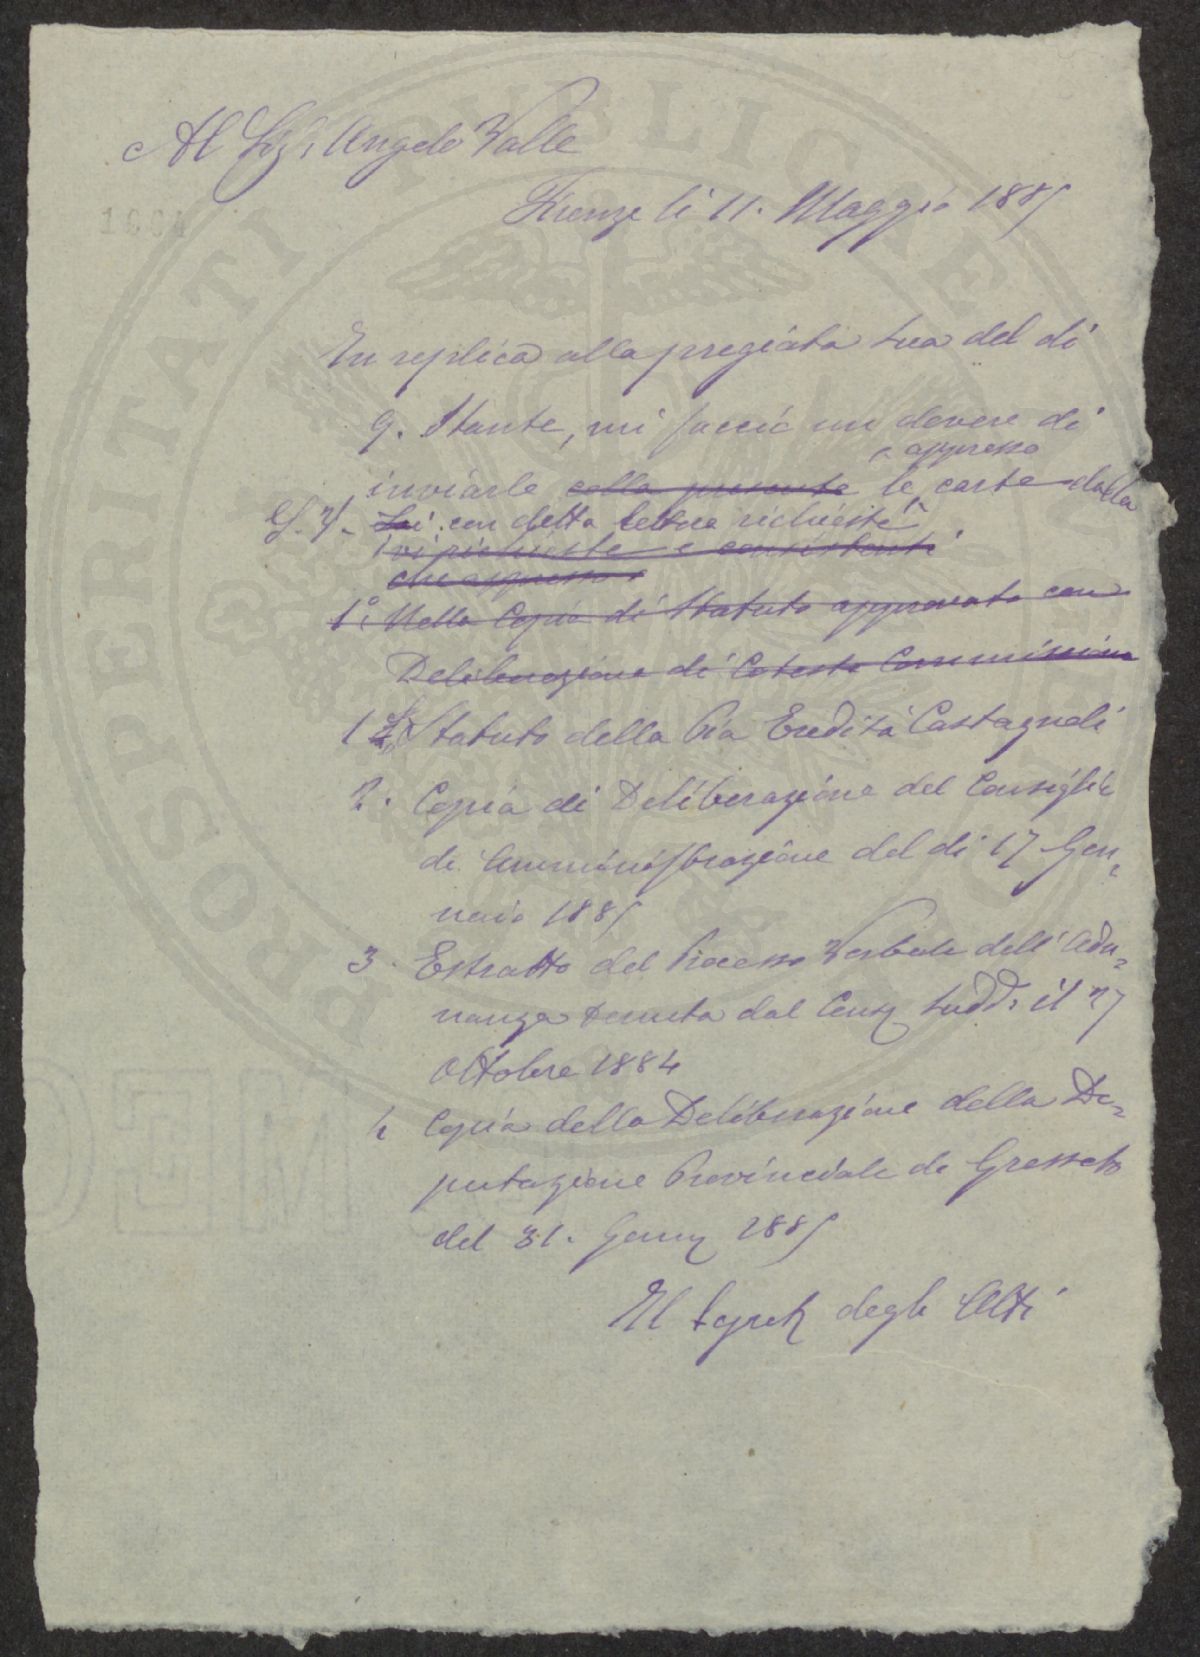 Al Sig. Angelo Valle
Firenze li 11. Maggio 1885
In replica alla pregiata sua del di
9. Stante, mi faccio un dovere di
appresso
inviarle colla presente le carte dalla
S. V. Lei con detta lettera richieste
ivi richieste e consistenti
che appresso
1° Nella Copia di Statuto approvato con
Deliberazione di Cotesta Commissione
1 Statuto della Pia Eredità Castagnoli
2. Copia di Deliberazione del Consiglio
di Amministrazione del di 17 Gen=
naio 1885
3. Estratto del Processo Verbale dell'Adu=
nanza tenuta dal Consig sudd. il 27
Ottobre 1884
4 Copia della Deliberazione della De=
putazione Provinciale di Grosseto
del 31. Genn 1885
Il Segret degli Atti
PROSPERITATI PUBLICAE